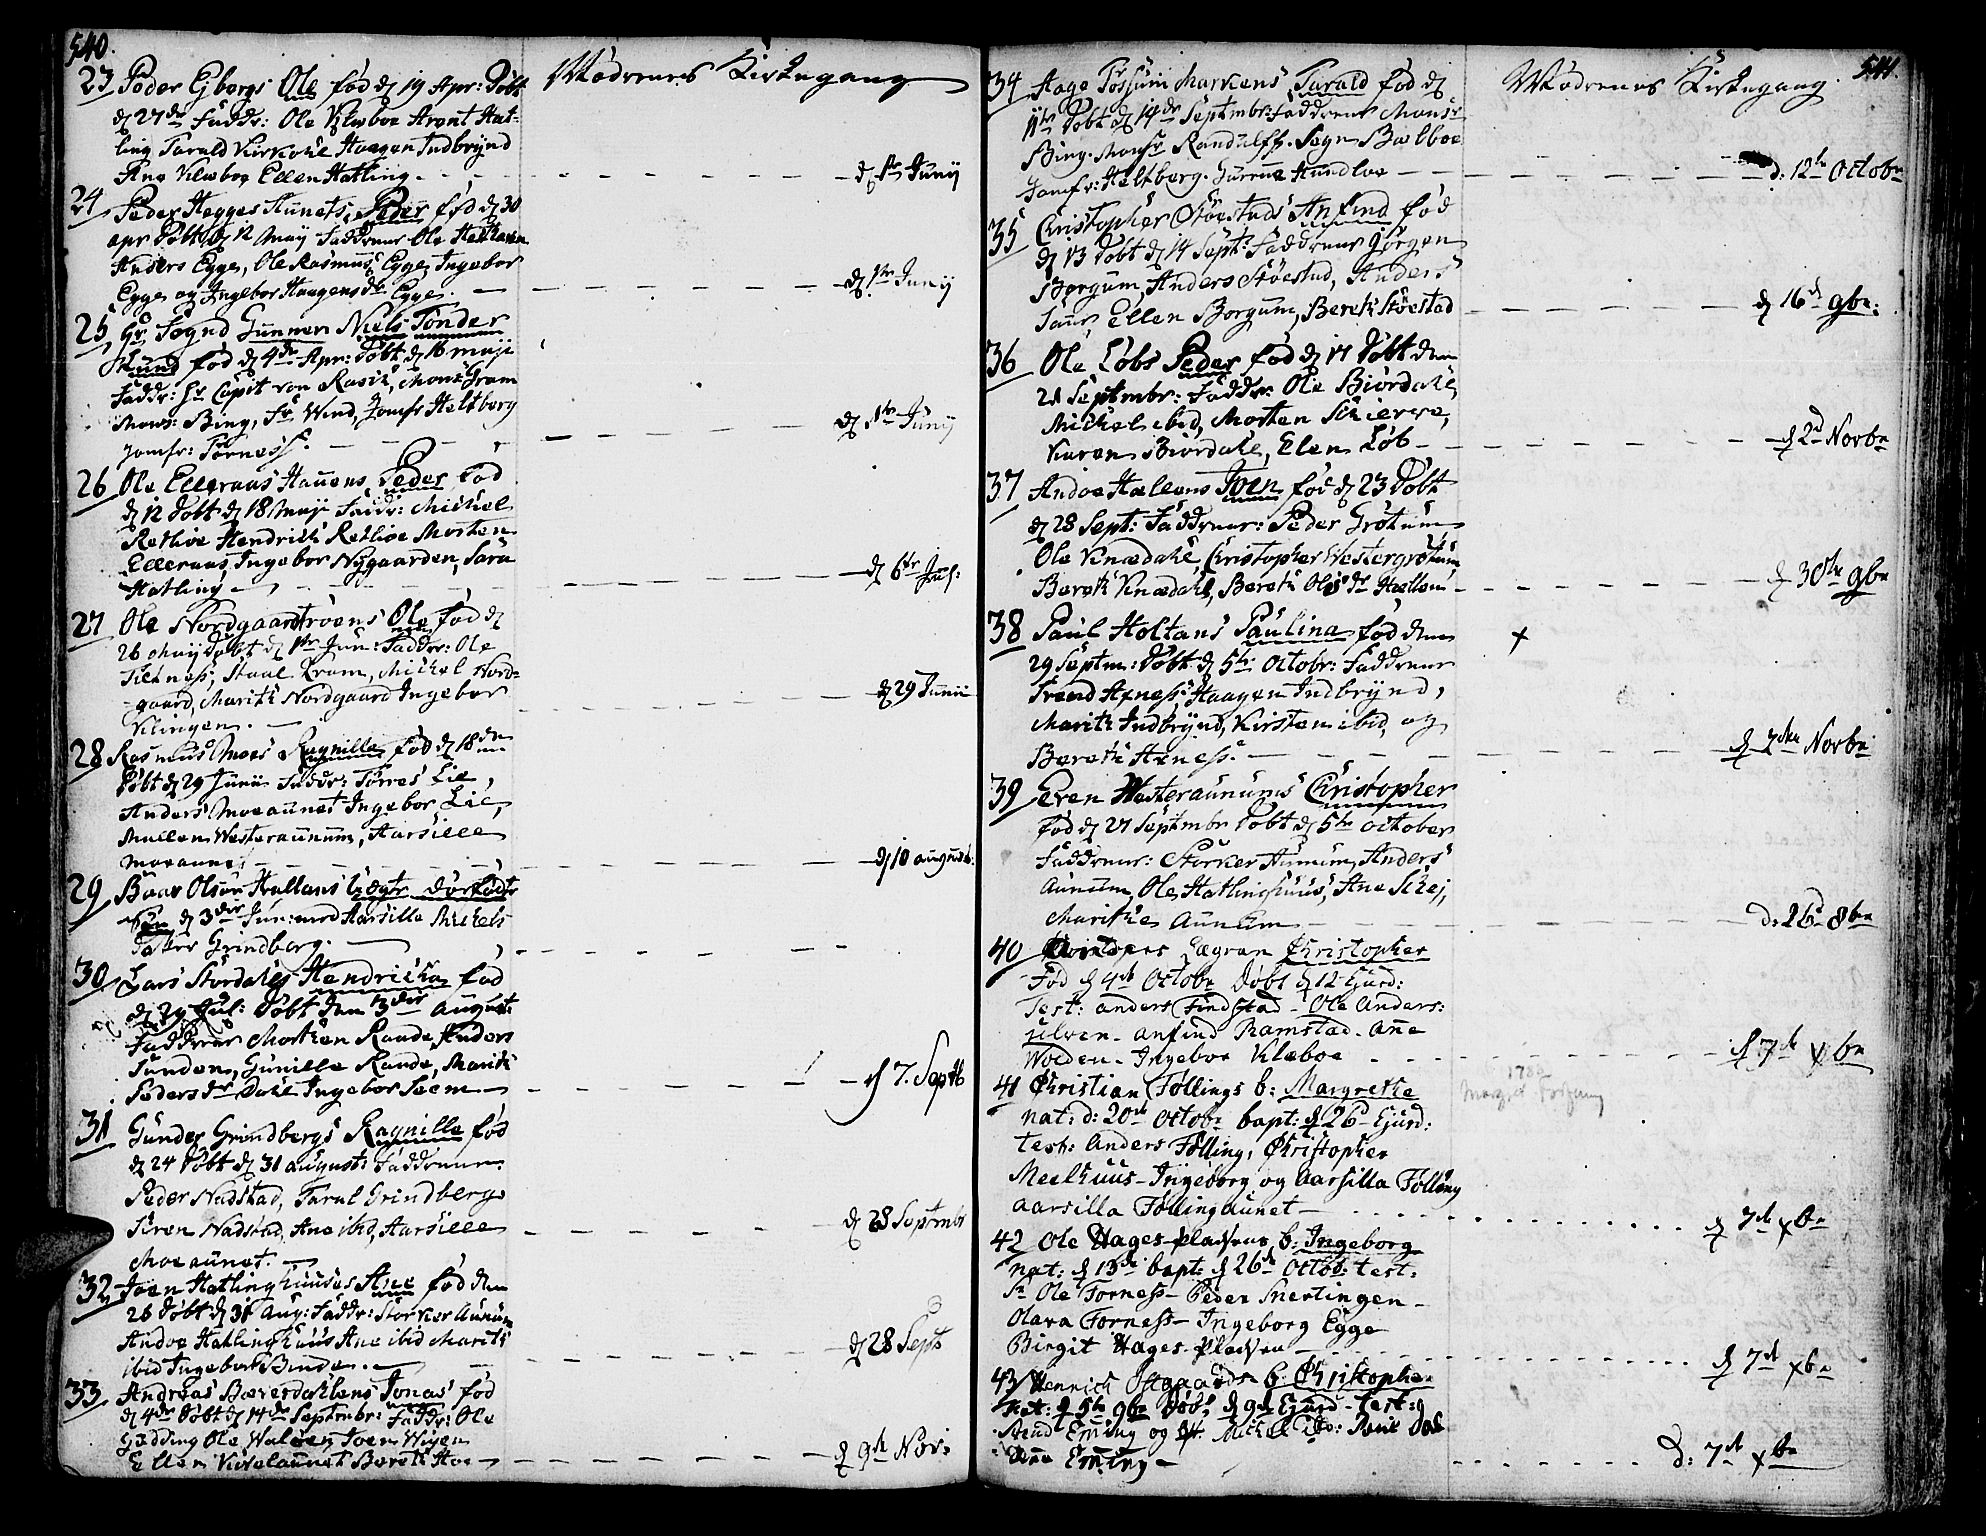 540.
Mödrenes Kirkegang
23 Peder Ejbergs Ole fød d 19 Apr: Døbt
d 27de Faddr: Ole Klæboe Arent Hat-
ling Tarald Kirkohl Haagen Indbrÿnd
Ane Klæboe Ellen Hatling. d 1te Junij
24 Peder Hegges Aunets Peder fød d 30
apr Døbt d 12 Maij Faddrene Ole
Anders Egge, Ole Rasmus Egge, Ingebor
Egge og Ingebor Haagensdr Egge. d 1te Junij
25 Hr Sognd Gunners Niels Tønder
fød d 4de Apr: Døbt d 16 maji
Faddr: Hr Capit von Mons: Gram
Mons: Bing, Fr Wind, Jomfr Heltberg d 1te Junij
Jomfr: Torness.
26 Ole Elleraas Hauens Peder fød
d 12 Døbt d 18 Maji Faddr: Michel
Retlioe Hendrich Retlioe Morten
Elleraas, Ingebor Nygaarden, Sara d 6te Jul:
Hatling
27 Ole Nordgaardtrøens Ole fød d
26 Maij Døbt d 1te Jun: Faddrr: Ole
Krom, Michel Nord-
gaard, Marith Nordgaard Ingebor d 29 Junii
Klingen.
28 Rasmus Moes Ragnilla fød d 18de
Døbt d 29 Junii Faddr: Torres Lie,
Anders Moeaunet Ingebor Lie,
Mallen Westeraunum, Aarsille
Moeaunet d 10 august:
29 Baar Olsøn Hallans Uægte dødfødte
Søn d 3die Jun: med Aarsille Michels-
datter Grindberg.
30 Lars Stordahls Hendricha fød
d 29 Jul: Døbt den 3die August:
Faddrene Morthen Rande, Anders
Sunden, Gunille Rande, Marith
Peders Dr Dahl Ingebor Seem d 7. Septb
31 Gunder Grindbergs Ragnilla fød
d 24 Døbt d 31 august: Faddrene
Peder Nadstad, Tarul Grindberg
Siren Nadstad, Ane ibid, Aarsille d 28 Septmbr
Moeaunet.
32 Joen Hatlinghuuses Ane fød den
26 Døbt d 31 Aug: Faddr: Storker Aunum
Andoe Hatlinghuus Ane ibid Marith d 28 Septb
ibid Ingebor Binde.
33 Andreas Bæverdahlens Jonas fød
d 4de Døbt d 14de Septmbr: Faddr: Ole
Gadding Ole Waløen Joen Wigen
Ellen Kirelaunet Bereth Hoe d 9d Nov:
541.
Mödrenes Kirkegang
34 Aage Fossum Markens Tarald fød d
11te Døbt d 14de Septmbr: Faddrene Mons:
Bing. Monsr Randulff. Segn Bælboe
Jomfr: Heltberg. Gurene Hundloe d: 12te Octobr
35 Christopher Støestads Anfind fød
d 13 Døbt d 14 Septr: Faddrene Jørgen
Borgum, Anders Støestad, Anders
Saur Ellen Borgum, Bereth Støestad d 16d 9br:
36 Ole Løbs Peder fød d 17 Døbt den
21 Septmbr: Faddr: Ole Biørdahl,
Michel ibid, Morten Schierve,
Karen Biørdahl, Elen Løb d 2d Norbr
37 Andoe Hællems Joen fød d 23 Døbt
d 28 Sept: Faddrene: Peder Grøtum
Ole Knædahl, Christopher Westergrøtum
Bereth Knædahl, Bereth Olsdr Hællem d 30te 9br
38 Paul Holtans Paulina fød den x
29 Septm: Døbt d 5te Octobr: Faddrene
Trond Axness, Haagen Indbrÿnd,
Marith Indbrÿnd, Kirsten ibid, og
Bereth Axness. d 2den Norbr
39 Even Westeraunums Christopher
fød d 27 Septmbr Døbt d 5te october
Faddrene: Storker Aunum, Anders
Aunum, Ole Hatlinghuus, Ane Schej,
Marithe Aunum d: 26d 8br
40 Lægran Christopher
Fød d 4de Octobr Døbt d 12 Ejusd:
Test: anders Findstad - Ole Anders:
ulven - anfind Ramstad - Ane
Wolden - Ingebor Klæboe d 7de xbr
41 Christian Føllings b: Margrethe 1782
nat: d: 20de Octobr bapt: d 26d Ejusd:
test: Anders Følling, Christopher
Meelhuus - Ingeborg og Aarsilla Følling
Aarsilla Føllingaunet d 7de xbr
42 Ole Hages pladsens b: Ingeborg
nat: d 13de bapt: d 26de Octob: test:
Sr Ole Forness - Peder Snertingen -
Olava Forness - Ingeborg Egge
Birgit Hages-pladsen d 7d xbr
43 Henrich Østgaards b: Christopher
Nat: d 5te 9br Døbt d 9d Ejusd - test:
Arnd Eming og Michel
Ane Eming d: 7de xbr